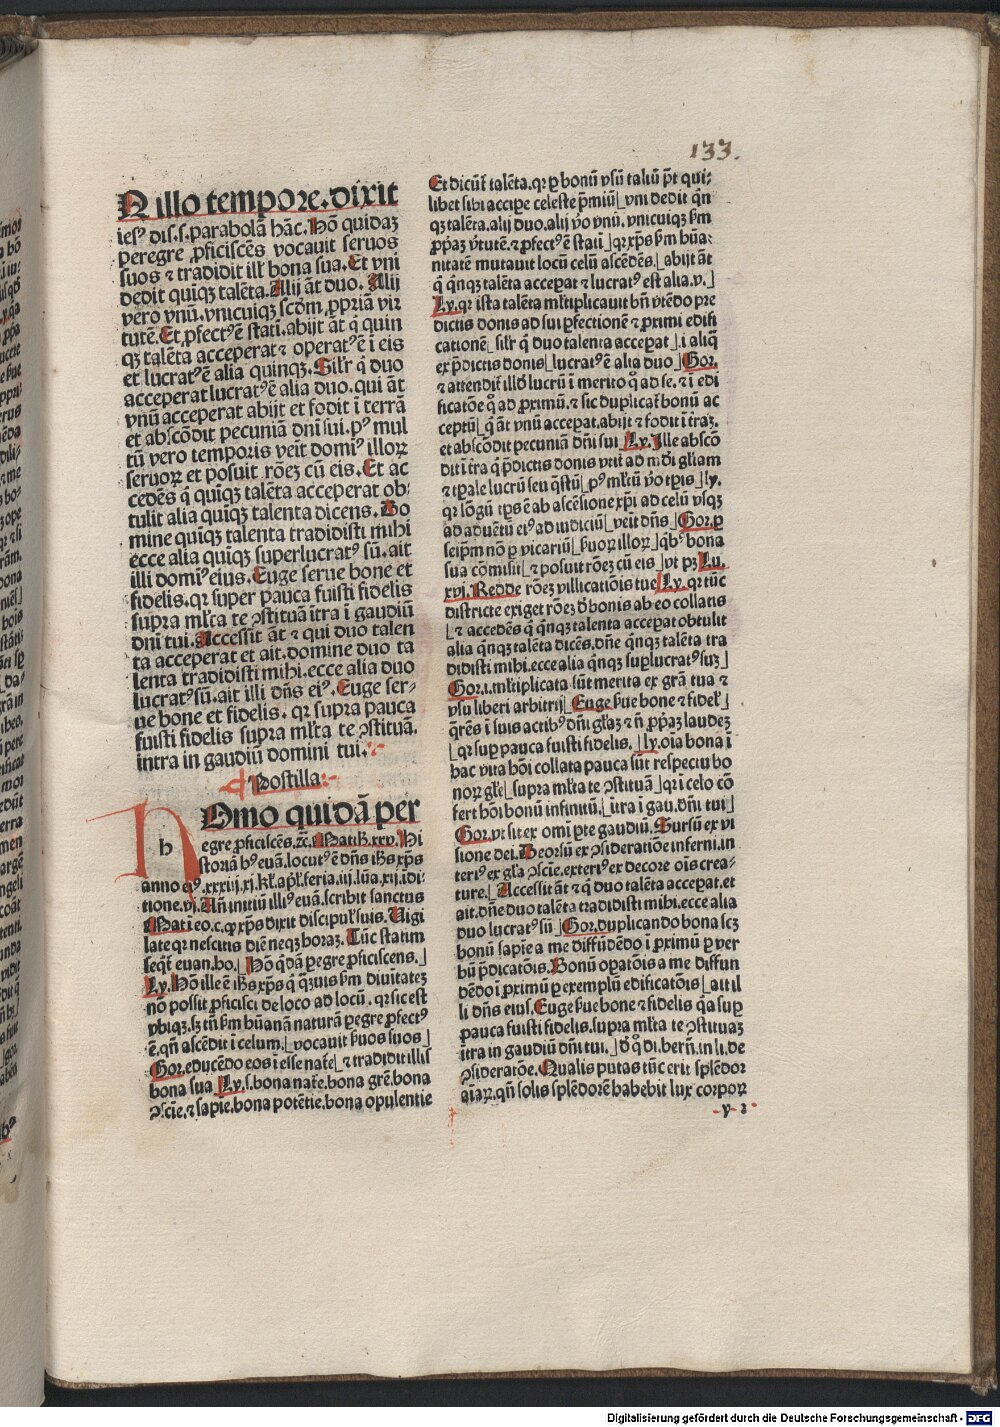 133.
N illo tempore. dixit
iesꝰ dis. s. parabolā hāc. Hō quidaʒ
peregre ꝓficiscēs vocauit seruos
suos ⁊ tradidit ill' bona sua. Et vni
dedit quinqʒ talēta. Alij āt duo. Alij
vero vnū. vnicuiqʒ scd'm ꝓpriā vir
tutē. Et ꝓfectꝰ ē stati. abijt āt q̄ quin
qʒ talēta acceperat ⁊ operatꝰ ē ī eis
et lucratꝰ ē alia quinqʒ. Silr̄ q̄ duo
acceperat lucratꝰ ē alia duo. qui āt
vnū acceperat abijt et fodit ī terrā
et abscōdit pecuniā dn̄i sui. pꝰ mul
tū vero temporis veīt domiꝰ illoꝝ
seruoꝝ et posuit rōeʒ cū eis. Et ac
cedēs q̄ quiqʒ talēta acceperat ob⸗
tulit alia quiqʒ talenta dicens. Do
mine quiqʒ talenta tradidisti mihi
ecce alia quiqʒ superlucratꝰ sū. ait
illi domiꝰ eius. Euge serue bone et
fidelis. qꝛ super pauca fuisti fidelis
supra ml'ta te ꝯstituā ītra ī gaudiū
dn̄i tui. Accessit āt ⁊ qui duo talen
ta acceperat et ait. domine duo ta
lenta tradidisti mihi. ecce alia duo
lucratꝰ sū. ait illi dn̄s eiꝰ. Euge ser⸗
ue bone et fidelis. qꝛ supra pauca
fuisti fidelis supra ml'ta te ꝯstituā.
intra in gaudiū domini tui.
¶ Postilla
h
Omo quidā per
egre ꝓficiscēs. ⁊c̄. Math. xxv. Hi
storiā hꝰ euā. locutꝰ ē dn̄s ih̄s xp̄s
anno eiꝰ. xxxiij. xj. kl'. apl'. feria. iij. lūa. xij. īdi⸗
tione. vj. An̄ initiū illiꝰ euā. scribit sanctus
Mat i eo. c. ꝙ xp̄s dixit discipul' suis. Uigi
late qꝛ nescitis diē neqʒ horaʒ. Tūc statim
seqt̄ euan. ho. | Hō q̄dā ꝑegre ꝓficiscens.|
Ly. Hō ille ē ih̄s xp̄s q̄ q̄ʒuis s'm diuitateʒ
nō possit ꝓficisci de loco ad locū. qꝛ sic est
vbiqʒ. sʒ tn̄ s'm hūanā naturā ꝑegre ꝓfectꝰ
ē. qn̄ ascēdit i celum. | vocauit s'uos suos|
Gor. educēdo eos i esse nat'e| ⁊ tradidit illis
bona sua |Ly. s. bona nat'e. bona gr̄e. bona
ꝯscīe. ⁊ sapīe. bona potētie. bona opulentie
Et dicūt' talēta. qꝛ ꝑ bonū vsū taliū pt̄ qui⸗
libet sibi accipe celeste p̄miū| vni dedit q̄n
qʒ talēta. alij duo. alij v̊o vnū. vnicuiqʒ s'm
ꝓpaʒ v'tutē. ⁊ ꝓfectꝰ ē stati| qꝛ xp̄s s'm hūa⸗
nitatē mutauit locū celū ascēdēs. |abijt āt
q̄ q̄nqʒ talēta accepat ⁊ lucratꝰ est alia. v.|
Ly. qꝛ ista talēta ml'tiplicauit bn̄ vtēdo pre
dictis donis ad sui ꝑfectionē ⁊ ꝓximi edifi
cationē| sil'r q̄ duo talenta accepat|. i aliq̄
ex p̄dictis donis| lucratꝰ ē alia duo| Gor.
⁊ attendit' illd' lucrū ī merito q̊ ad se. ⁊ ī edi
ficatōe q̊ ad ꝓximū. ⁊ sic duplicat' bonū ac
ceptū| q̄ āt vnū accepat. abijt ⁊ fodit i traʒ.
et abscōdit pecuniā dn̄i sui |Ly. Ille abscō
dit i tra q̄ p̄dictis donis vtit' ad mūdi gl'iam
⁊ tpale lucrū seu q̄stū| pꝰ ml'tū v̊o tpris |ly.
qꝛ lōgū tp̄s ē ab ascēsione xp̄i ad celū vsqʒ
ad aduētū eiꝰ ad iudiciū| veīt dn̄s |Gor. ꝑ
seip̄m nō ꝑ vicariū| s'uoꝝ illoꝝ| q̄bꝰ bona
sua cōmisit| ⁊ posuit rōeʒ cū eis |vt pʒ Lu.
xvi. Redde rōeʒ villicatiōis tue|Ly. qꝛ tūc
districte exiget rōeʒ d' bonis ab eo collatis
|⁊ accedēs q̄ q̄nqʒ talenta accepat obtulit
alia q̄nqʒ talēta dicēs. dn̄e q̄nqʒ talēta tra
didisti mihi. ecce alia q̄nqʒ suplucratꝰ suʒ|
Gor. i. ml'tiplicata sūt merita ex gr̄a tua ⁊
vsu liberi arbitrij| Euge s'ue bone ⁊ fidel'|
q̄rēs i suis actibꝰ dn̄i gl'aʒ ⁊ n̄ ꝓpaʒ laudeʒ
|qꝛ sup pauca fuisti fidelis. |ly. oīa bona ī
hac vita hōi collata pauca sūt respectu bo
noꝝ gl'e| supra ml'ta te ꝯstituā| qꝛ i celo cō
fert' hōi bonū infinitū| ītra i gau. dn̄i tui|
Gor. vt sit ex omī ꝑte gaudiū. Sursū ex vi
sione dei. Deorsū ex ꝯsideratiōe inferni. in
teriꝰ ex gl'a ꝯscīe. exteriꝰ ex decore ōis crea⸗
ture.| Accessit āt ⁊ q̄ duo talēta accepat. et
ait. dn̄e duo talēta tradidisti mihi. ecce alia
duo lucratꝰ sū| Gor. duplicando bona scʒ
bonū sapīe a me diffūdēdo i ꝓximū ꝑ ver
bū p̄dicatōis. Bonū opatōis a me diffun
dēdo i ꝓximū ꝑ exemplū edificatōis| ait il
li dn̄s eius. Euge s'ue bone ⁊ fidelis q̄a sup
pauca fuisti fidelis. supra ml'ta te ꝯstituaʒ
ītra in gaudiū dn̄i tui.| d' q̊ di. bern̄. in li. de
ꝯsideratōe. Qualis putas tūc erit splēdor
aīaꝝ. qn̄ solis splēdorē habebit lux corpoꝝ
y 2
Digitalisierung gefördert durch die Deutsche Forschungsgemeinschaft - DFG